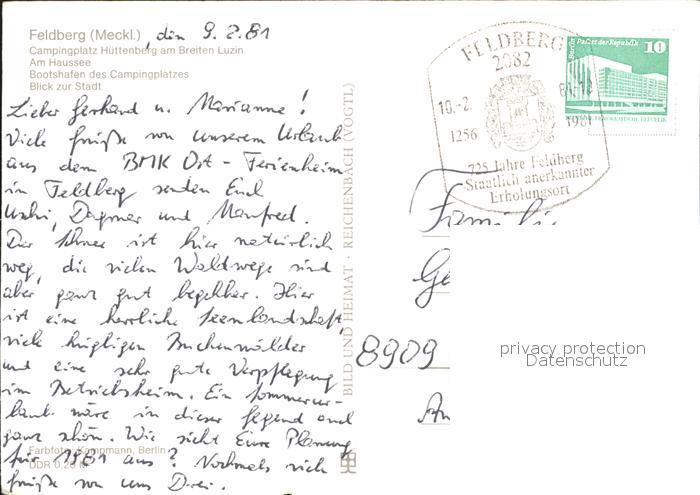 Feldberg (Meckl.) , den 9.2.81
Campingplatz Hüttenberg am Breiten Luzin
Am Haussee
Bootshafen des Campingplatzes
Blick zur Stadt
Lieber Gerhard u. Marianne!
Viele Grüße von unserem Urlaub
aus dem BMK Ost - Ferienheim
in Feldberg senden Euch
Uschi, Dagmar und Manfred.
Der Schnee ist hier natürlich
weg, die vielen Waldwege sind
aber ganz gut begehbar. Hier
ist eine herrliche Seenlandschaft,
viele hügligen Buchenwälder
und eine sehr gute Verpflegung
im Betriebsheim. Ein Sommerur-
laub wäre in dieser Gegend auch
ganz schön. Wie sieht Eure Planung
für 1981 aus? Nochmals viele
Grüße von uns Drei.
Farbfoto: Kampmann, Berlin
DDR 0,20 M
BILD UND HEIMAT · REICHENBACH (VOGTL)
FELDBERG
2082
10.-2. 81-12
1256 1981
725 Jahre Feldberg
Staatlich anerkannter
Erholungsort
Berlin Palast der Republik 10
DEMOKRATISCHE REPUBLIK
Familie
Ge
8909
An
privacy protection
Datenschutz